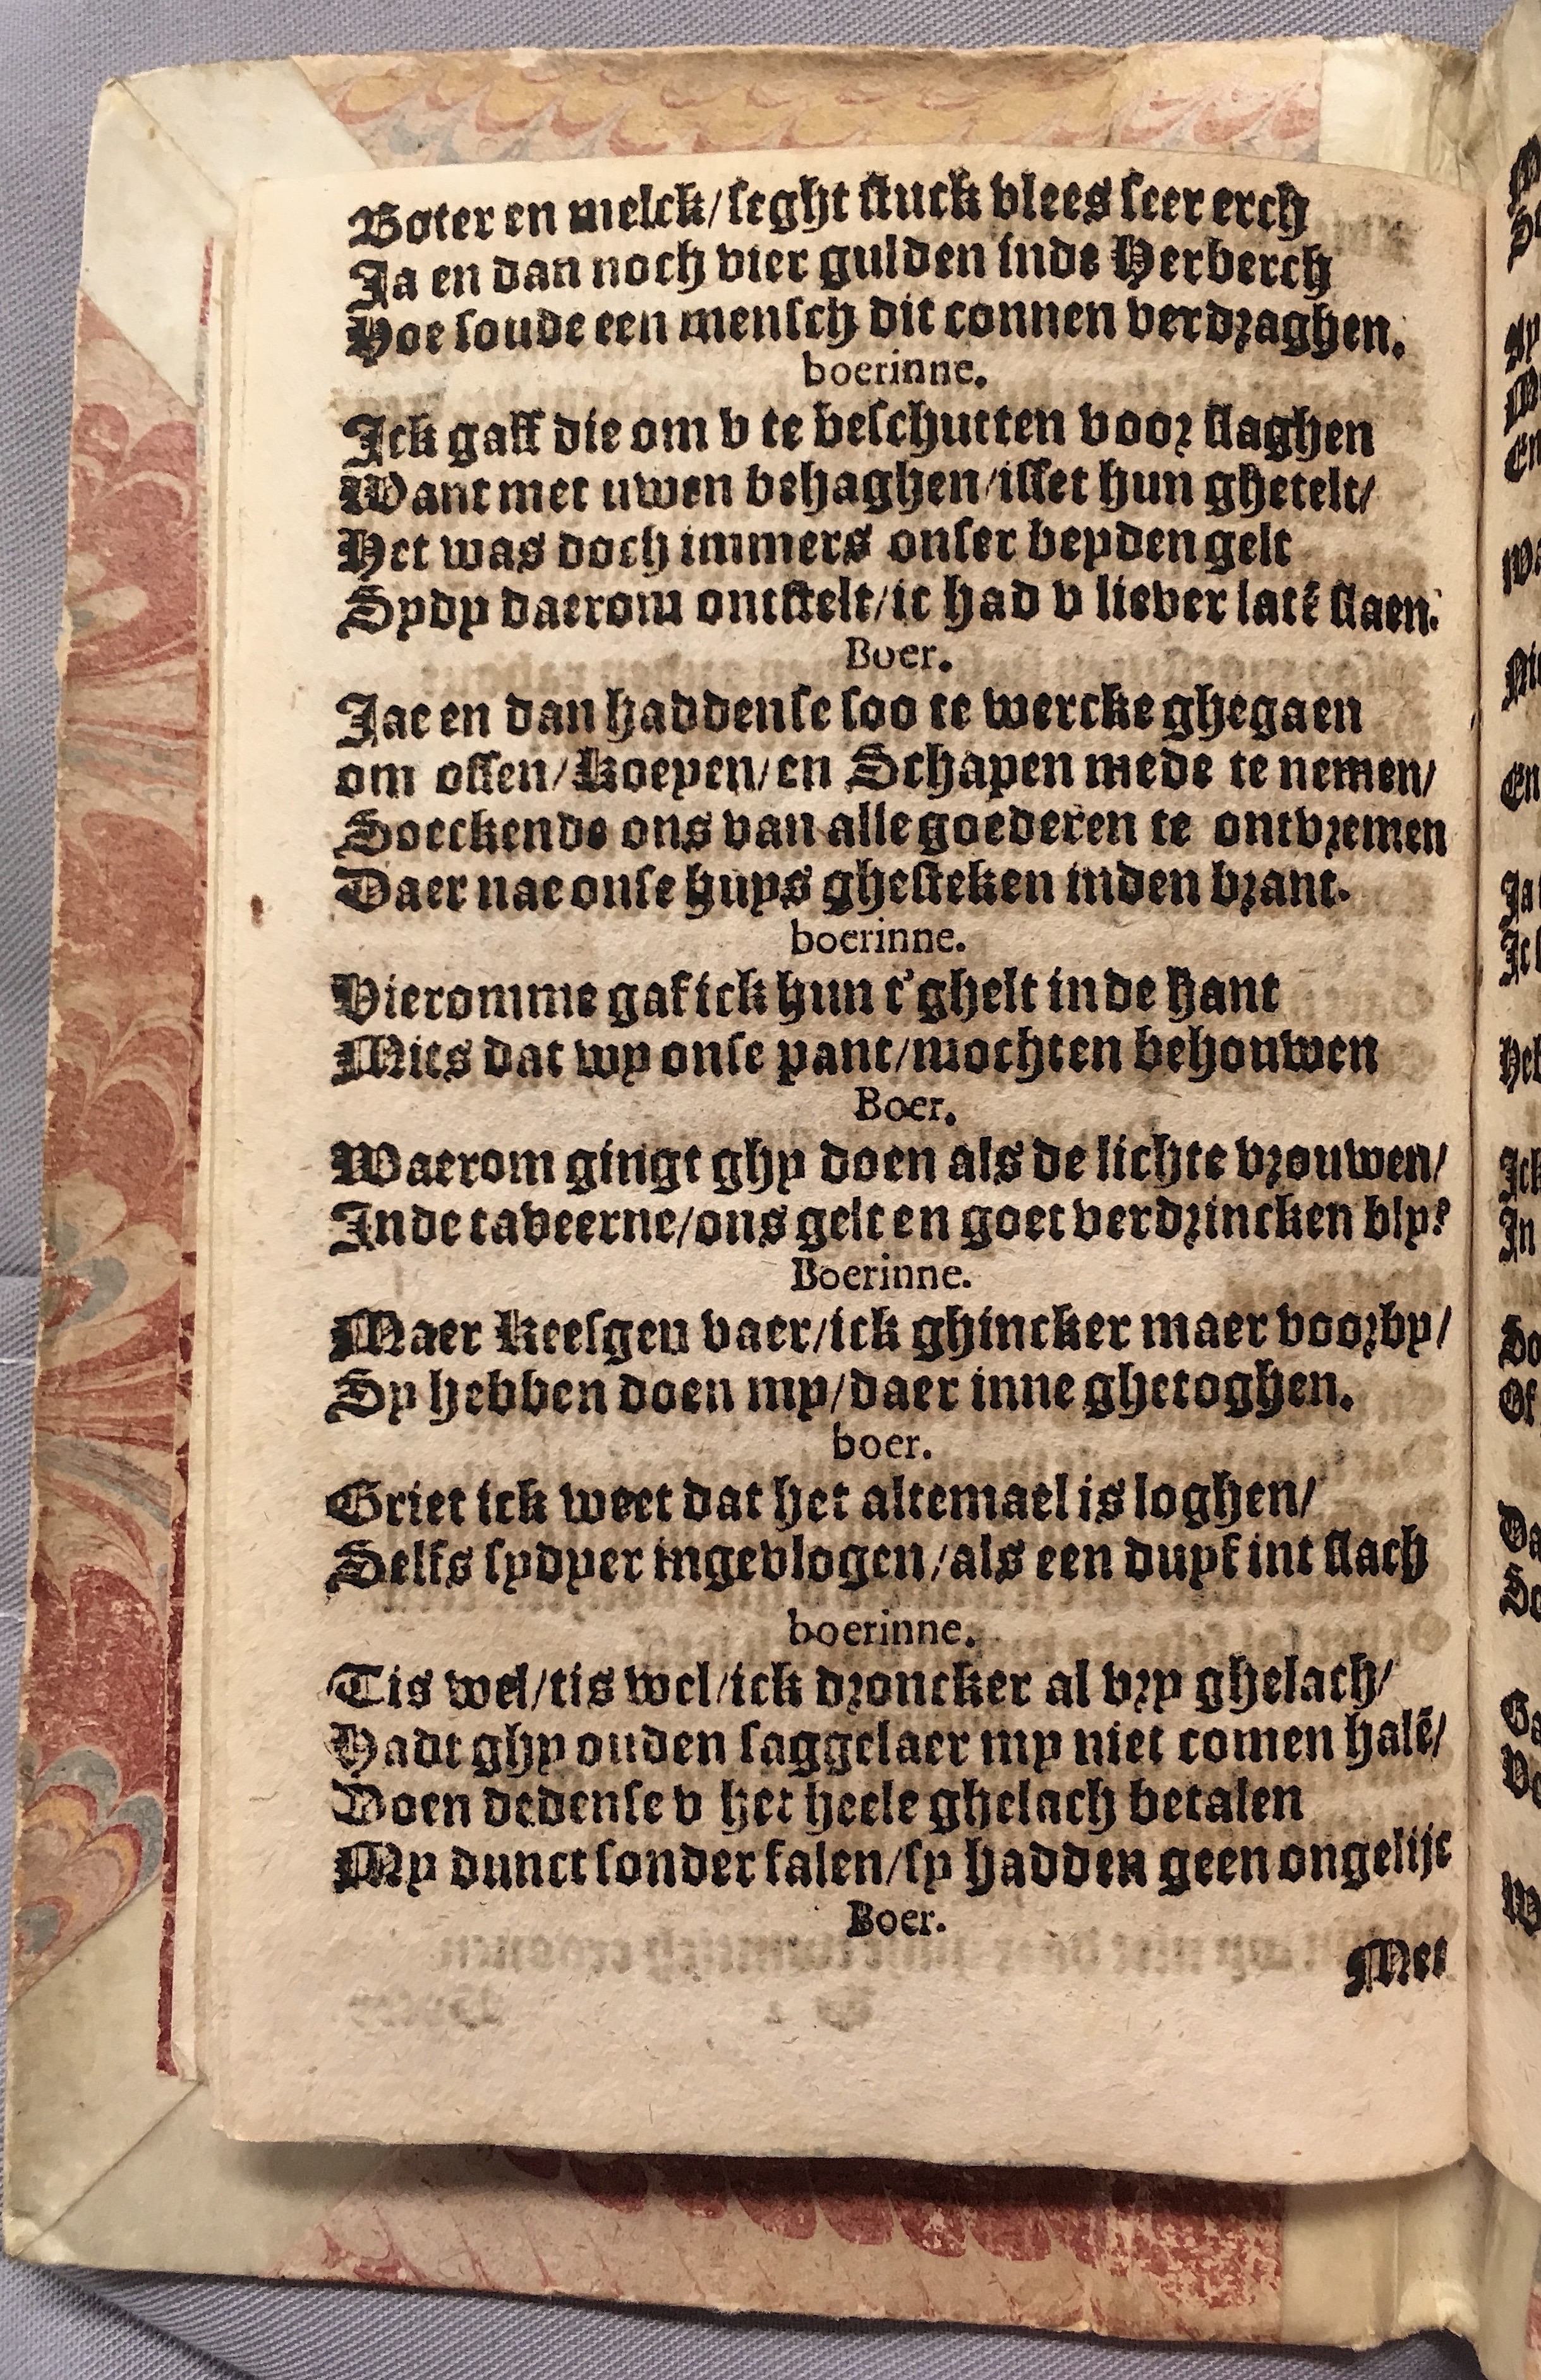 Boter en melck/ seght stuck vlees seer erch
Ja en dan noch vier gulden inde Herberch
Hoe soude een mensch dit connen verdraghen.
boerinne.
Ick gaff die om v te beschutten voor slaghen
Want met uwen behaghen/isset hun ghetelt/
Het was doch immers onser beyden gelt
Sydy daerom ontstelt/ic had v liever latē slaen.
Boer.
Jae en dan haddense soo te wercke ghegaen
om ossen/Koeyen/en Schapen mede te nemen/
Soeckende ons van alle goederen te ontvremen
Daer nae onse huys ghesteken inden brant.
boerinne.
Hieromme gaf ick hun t'ghelt inde hant
Mits dat wy onse pant/mochten behouwen
Boer.
Waerom gingt ghy doen als de lichte vrouwen/
Inde taveerne/ons gelt en goet verdrincken bly?
Boerinne.
Maer Keesgen vaer/ick ghincker maer voorby/
Sy hebben doen my/daer inne ghetoghen.
boer.
Griet ick weet dat het altemael is loghen/
Selfs sydyer ingevlogen/als een duyf int slach
boerinne.
Tis wel/tis wel/ick droncker al vry ghelach/
Hadt ghy ouden saggelaer my niet comen halē/
Doen dedense v het heele ghelach betalen
My dunct sonder falen/sy hadden geen ongelijc
Boer.
Met